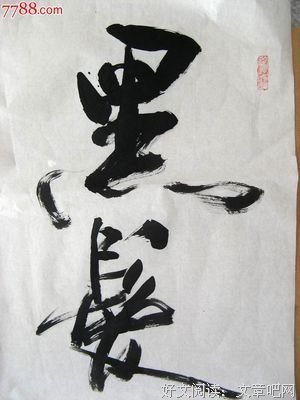 7788.com
黑
髮
好文阅读：文章吧网